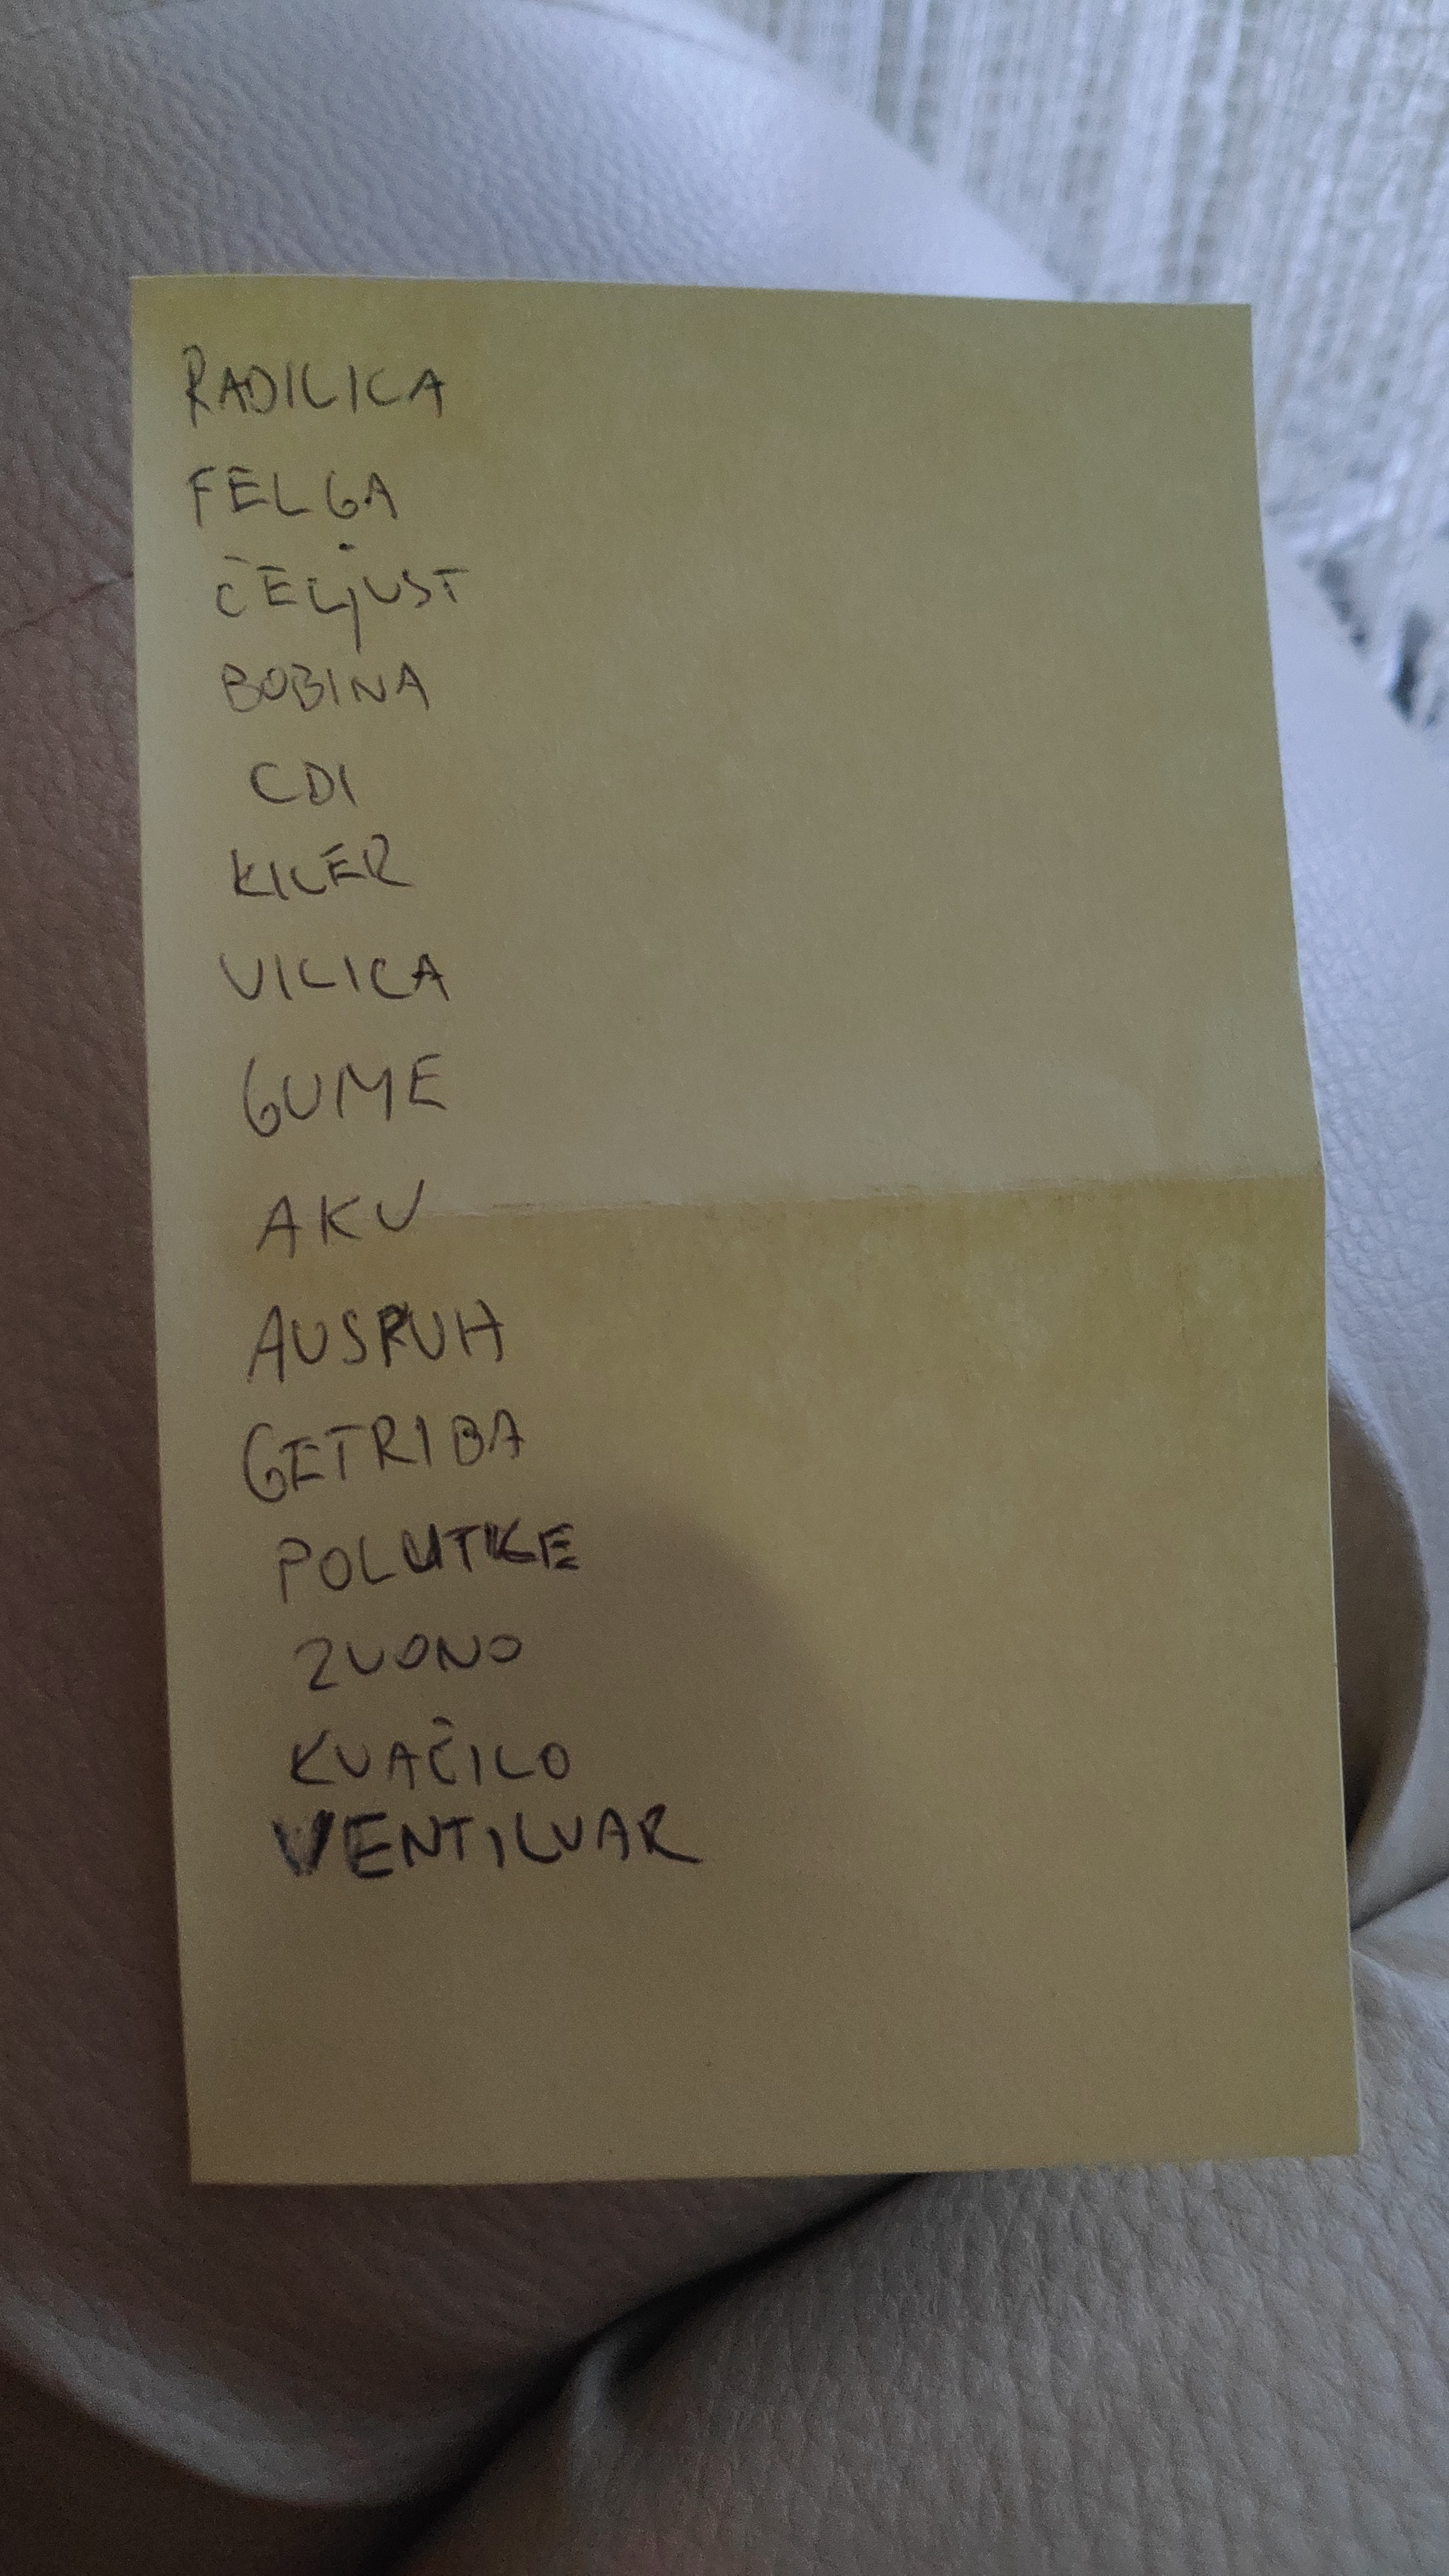 RADILICA
FELGA
ČELjUST
BOBINA
CDI
KILER
VILICA
GUME
AKU
AUSPUH
GETRIBA
POLUTKE
ZVONO
KVAČILO
VENTILVAR